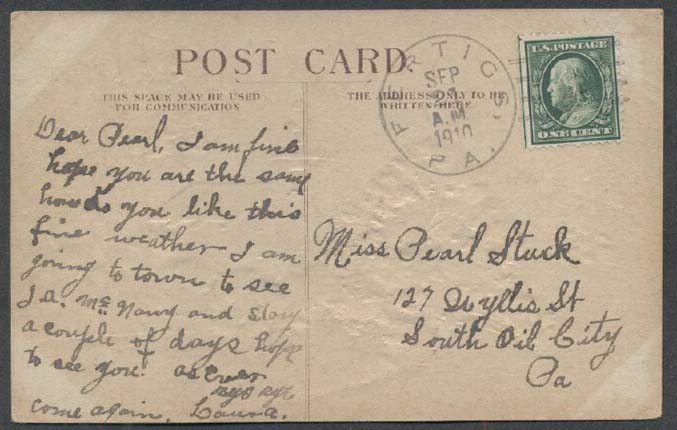 POST CARD.
THIS SPACE MAY BE USED
FOR COMMUNICATION
THE ADDRESS ONLY TO BE
WRITTEN HERE.
FERTIGS,
PA.
SEP
A.M
1910
U.S. POSTAGE
ONE CENT
Dear Pearl, I am fine
hope you are the same
how do you like this
fine weather I am
going to town to see
and stay
a couple of days hope
to see you. as Ever
bye bye
come again. Laura.
Miss Pearl Stuck
127 Wyllis St
South Oil City
Pa